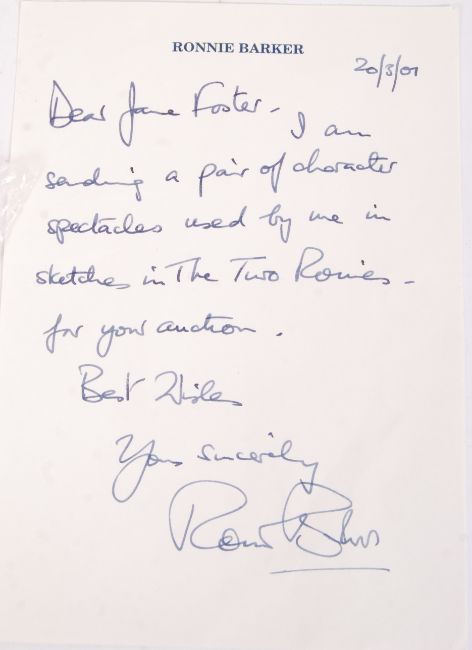 RONNIE BARKER
20/3/01
Dear Jane Foster -
I am
sending a pair of character
spectacles used by me in
sketches in The Two Ronnies -
for your auction .
Best Wishes
Yours sincerely
Ronnie Barker